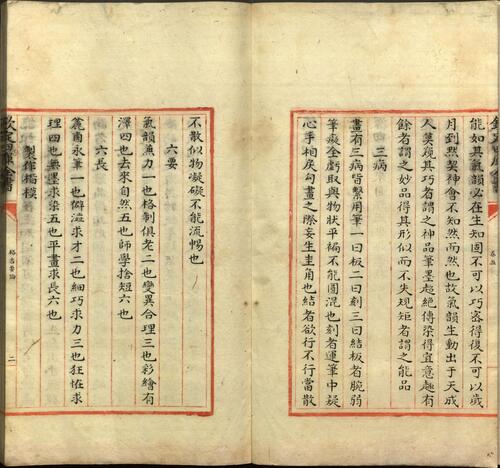 能如其氣韻必在生知固不可以巧宻得復不可以歲
月到黙契神會不知然而然也故氣韻生動出于天成
人莫窺其巧者謂之神品筆墨超絶傳染得宜意趣有
餘者謂之妙品得其形似而不失規矩者謂之能品
三病
畫有三病皆繫用筆一曰板二曰刻三曰結板者腕弱
筆癡全虧取與物狀平褊不能圓混也刻者運筆中疑
心手相戾勾畫之際妄生圭角也結者欲行不行當散
不散似物凝礙不能流暢也
六要
氣韻兼力一也格制俱老二也變異合理三也彩繪有
澤四也去來自然五也師學捨短六也
六長
麄鹵求筆一也僻澁求才二也細巧求力三也狂怪求
理四也無墨求染五也平畫求長六也
製作楷模
欽定四庫全書
格古要論
二